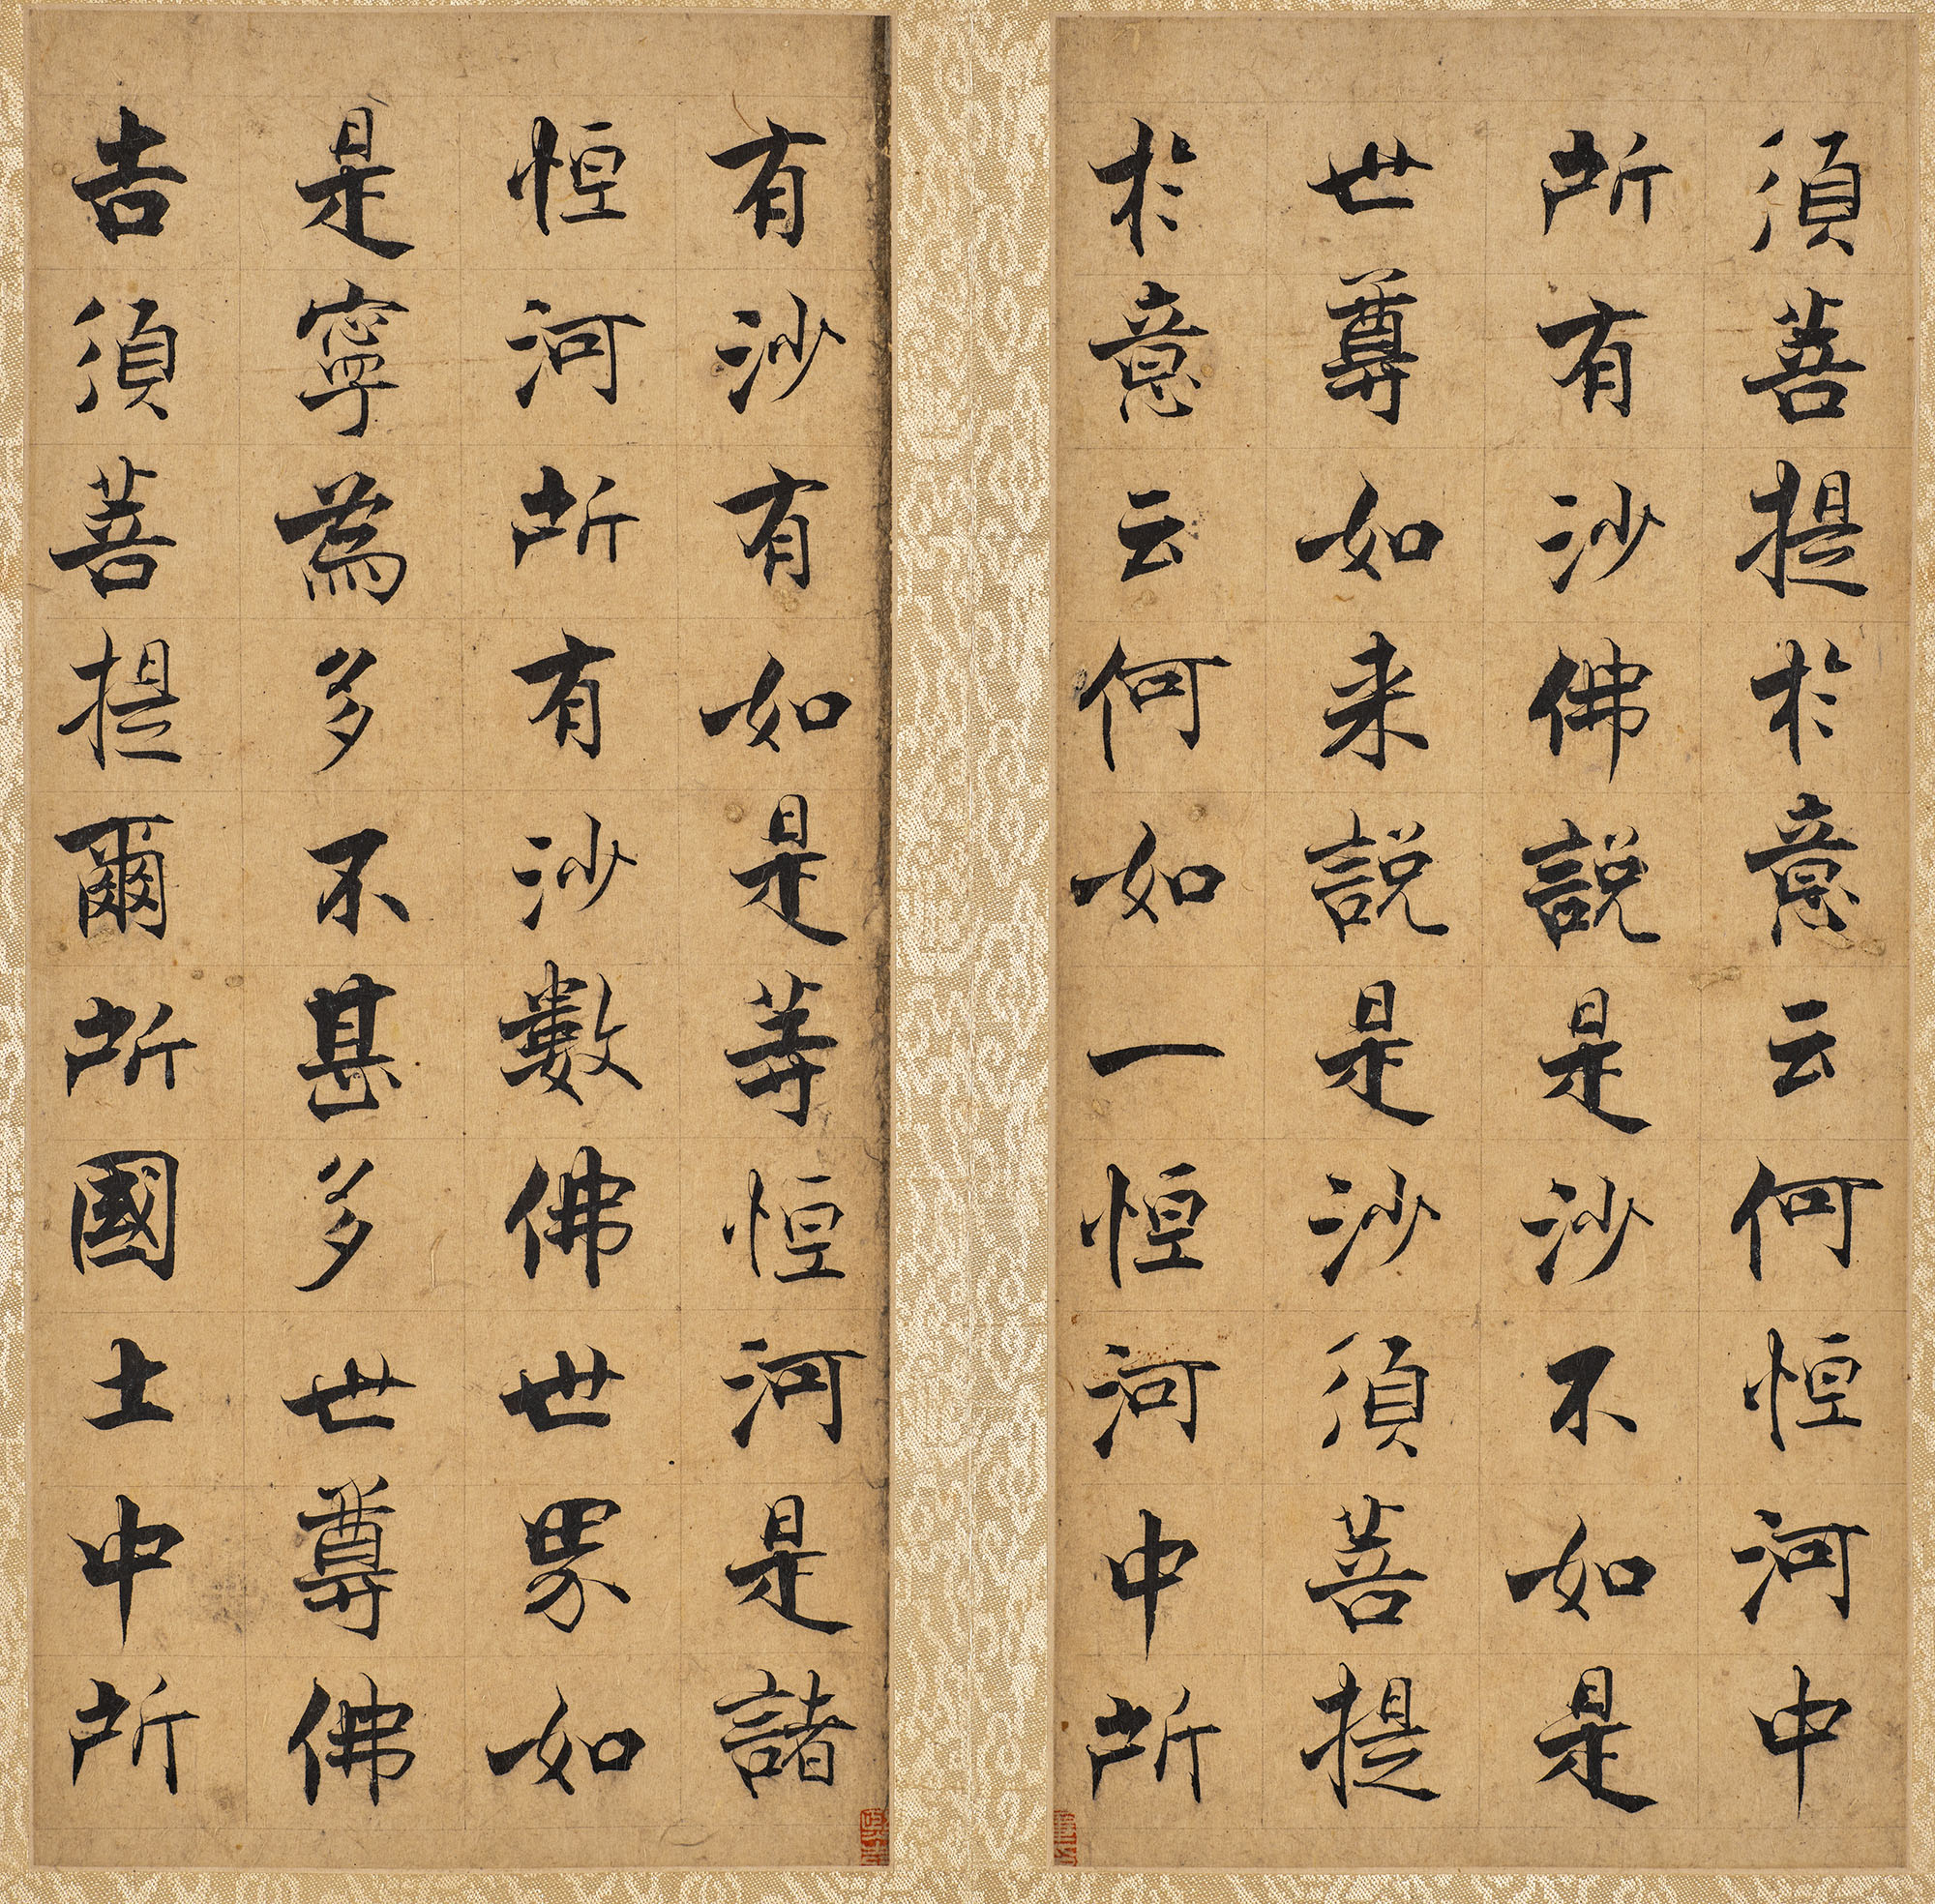 須菩提於意云何恒河中
所有沙佛說是沙不如是
世尊如来說是沙須菩提
於意云何如一恒河中所
有沙有如是等恒河是諸
恒河所有沙數佛世界如
是寧為多不甚多世尊佛
告須菩提爾所國土中所